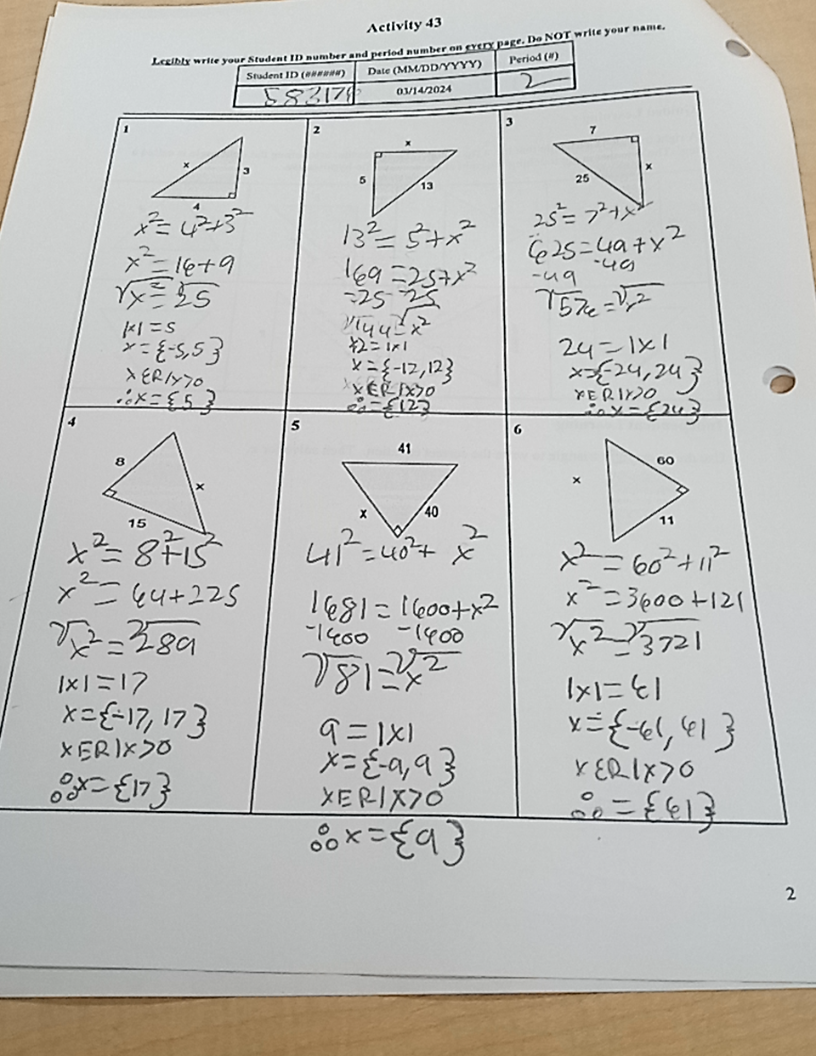 Activity 43
Legibly write your Student ID number and period number on every page. Do NOT write your name.
Student ID (######) Date (MM/DD/YYYY) Period (#)
03/14/2024 2
1
x
3
4
x²=4²+3²
x²=16+9
√x²=√25
|x|=5
x={-5,5}
x∈R|x>0
∴x={5}
2
x
5
13
13²=5²+x²
169=25+x²
-25 -25
√144=√x²
12=|x|
x={-12,12}
x∈R|x>0
∴={12}
3
7
x
25
25²=7²+x²
625=49+x²
-49 -49
√576=√x²
24=|x|
x={-24,24}
x∈R|x>0
∴x={24}
4
8
x
15
x²=8²+15²
x²=64+225
√x²=√289
|x|=17
x={-17,17}
x∈R|x>0
∴x={17}
5
41
x
40
41²=40²+x²
1681=1600+x²
-1600 -1600
√81=√x²
9=|x|
x={-9,9}
x∈R|x>0
∴x={9}
6
60
x
11
x²=60²+11²
x²=3600+121
√x²=√3721
|x|=61
x={-61,61}
x∈R|x>0
∴={61}
2